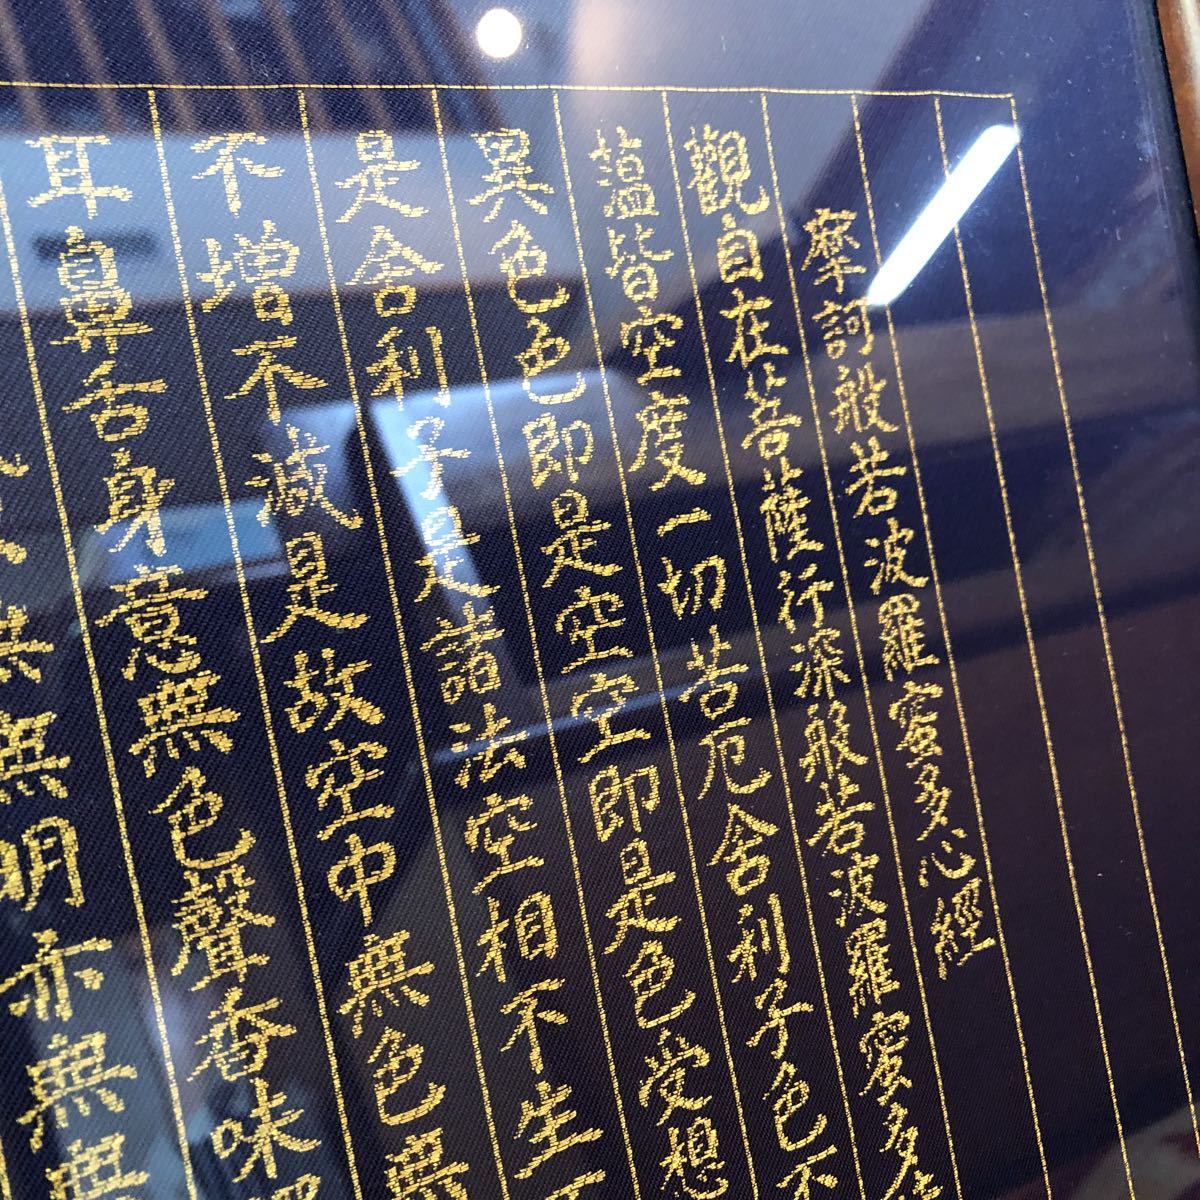 摩訶般若波羅蜜多心經
觀自在菩薩行深般若波羅蜜多
蘊皆空度一切苦厄舍利子色不
異色色即是空空即是色受想
是舍利子是諸法空相不生
不增不減是故空中無色無
耳鼻舌身意無色聲香味
無無明亦無無